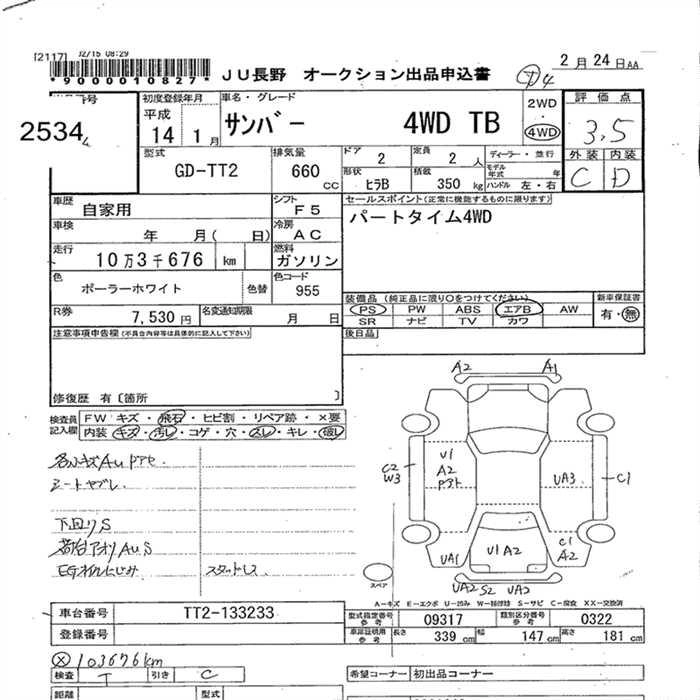 [2117] 2/15 08:29
*9000010827*
JU長野 オークション出品申込書
2月24日AA
号
2534
初度登録年月
平成
14 1月
車名・グレード
サンバー 4WD TB
2WD
・
4WD
評価点
3.5
外装 内装
C D
型式
GD-TT2
排気量
660
CC
ドア
2
定員
2人
ディーラー・並行
形状
ヒラB
積載
350 kg
モデル年式 年
ハンドル 左・右
車歴
自家用
シフト
F5
セールスポイント(正常に機能するものに限ります)
パートタイム4WD
車検
年 月( 日)
冷房
AC
走行
10万3千676 km
燃料
ガソリン
色
ポーラーホワイト
色替
色コード
955
装備品 (純正品に限り○をつけてください)
PS PW ABS エアB AW
SR ナビ TV カワ
新車保証書
有・無
R券
7,530円
名変通知期限
月 日
注意事項申告欄(不具合内容等は具体的に記入して下さい)
後日品
修復歴 有〔箇所 〕
検査員記入欄
FW キズ・飛石・ヒビ割・リペア跡・×要
内装 キズ・汚レ・コゲ・穴・スレ・キレ・破レ
シートヤブレ
下回りS
荷台アオリAUS
EGオイルにじみ スタッドレス
A2 A1
U1
A2
C2
W3
UA3
C1
UA1
U1 A2
C1
A2
UA2 S2 UA2
スペア
A-キズ E-エクボ U-凹み W-補修跡 S-サビ C-腐食 XX-交換済
車台番号
TT2-133233
登録番号
型式指定番号 参考
09317
類別区分番号 参考
0322
車庫証明用 参考
長さ 339 cm 幅 147 cm 高さ 181 cm
Ⓧ103676km
検査 T 引き C
希望コーナー 初出品コーナー
距離 型式